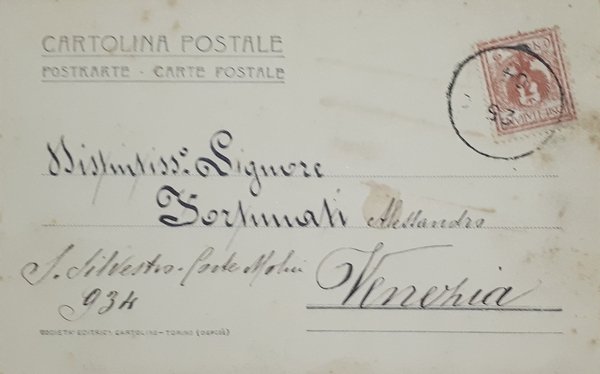 CARTOLINA POSTALE
POSTKARTE - CARTE POSTALE
Distintiss.º Signore
Fortunati Alessandro
S. Silvestro - Corte
934
Venezia
SOCIETÀ EDITRICE CARTOLINE - TORINO